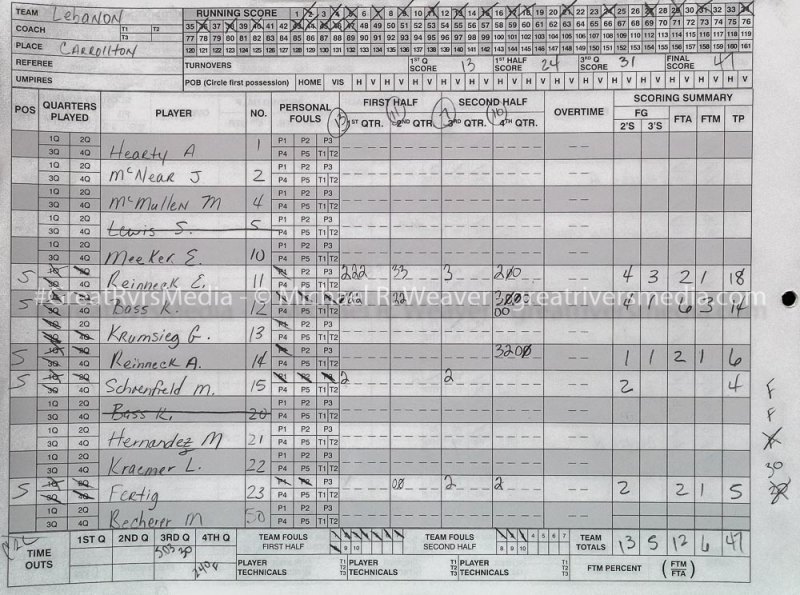 TEAM Lebanon RUNNING SCORE 1 2 3 4 5 6 7 8 9 10 11 12 13 14 15 16 17 18 19 20 21 22 23 24 25 26 27 28 29 30 31 32 33 34
35 36 37 38 39 40 41 42 43 44 45 46 47 48 49 50 51 52 53 54 55 56 57 58 59 60 61 62 63 64 65 66 67 68 69 70 71 72 73 74 75 76
COACH T1 T2 77 78 79 80 81 82 83 84 85 86 87 88 89 90 91 92 93 94 95 96 97 98 99 100 101 102 103 104 105 106 107 108 109 110 111 112 113 114 115 116 117 118 119
PLACE Carrollton 120 121 122 123 124 125 126 127 128 129 130 131 132 133 134 135 136 137 138 139 140 141 142 143 144 145 146 147 148 149 150 151 152 153 154 155 156 157 158 159 160 161
REFEREE TURNOVERS 1ST Q SCORE 13 1ST HALF SCORE 24 3RD Q SCORE 31 FINAL SCORE 47
UMPIRES POB (Circle first possession) HOME VIS H V H V H V H V H V H V H V H V H V H V H V H V H V H V H V
POS QUARTERS PLAYED PLAYER NO. PERSONAL FOULS FIRST HALF SECOND HALF OVERTIME SCORING SUMMARY
13 1ST QTR. 11 2ND QTR. 7 3RD QTR. 16 4TH QTR. FG 2'S 3'S FTA FTM TP
1Q 2Q 3Q 4Q Hearty A 1 P1 P2 P3 P4 P5 T1 T2
1Q 2Q 3Q 4Q McNear J 2 P1 P2 P3 P4 P5 T1 T2
1Q 2Q 3Q 4Q McMullen M 4 P1 P2 P3 P4 P5 T1 T2
1Q 2Q 3Q 4Q Lewis S. 5 P1 P2 P3 P4 P5 T1 T2
1Q 2Q 3Q 4Q Meeker E. 10 P1 P2 P3 P4 P5 T1 T2
S 1Q 2Q 3Q 4Q Reinneck E. 11 P1 P2 P3 P4 P5 T1 T2 222 33 3 200 4 3 2 1 18
#GreatRvrsMedia - © Michael R. Weaver - greatriversmedia.com
S 1Q 2Q 3Q 4Q Bass K. 12 P1 P2 P3 P4 P5 T1 T2 22 3000 00 4 1 6 3 14
1Q 2Q 3Q 4Q Krumsieg G. 13 P1 P2 P3 P4 P5 T1 T2
S 1Q 2Q 3Q 4Q Reinneck A. 14 P1 P2 P3 P4 P5 T1 T2 3200 1 1 2 1 6
S 1Q 2Q 3Q 4Q Schrenfeld M. 15 P1 P2 P3 P4 P5 T1 T2 2 2 2 4 F
1Q 2Q 3Q 4Q Bass K. 20 P1 P2 P3 P4 P5 T1 T2 F
1Q 2Q 3Q 4Q Hernandez M 21 P1 P2 P3 P4 P5 T1 T2
1Q 2Q 3Q 4Q Kraemer L. 22 P1 P2 P3 P4 P5 T1 T2 30
S 1Q 2Q 3Q 4Q Fertig 23 P1 P2 P3 P4 P5 T1 T2 00 2 2 2 2 1 5
1Q 2Q 3Q 4Q Recherer M 50 P1 P2 P3 P4 P5 T1 T2
TIME OUTS 1ST Q 2ND Q 3RD Q 4TH Q TEAM FOULS FIRST HALF 9 10 TEAM FOULS SECOND HALF 4 5 6 7 8 9 10 TEAM TOTALS 13 5 12 6 47
PLAYER TECHNICALS T1 T2 T3 PLAYER TECHNICALS T1 T2 T3 PLAYER TECHNICALS T1 T2 T3 FTM PERCENT (FTM FTA)